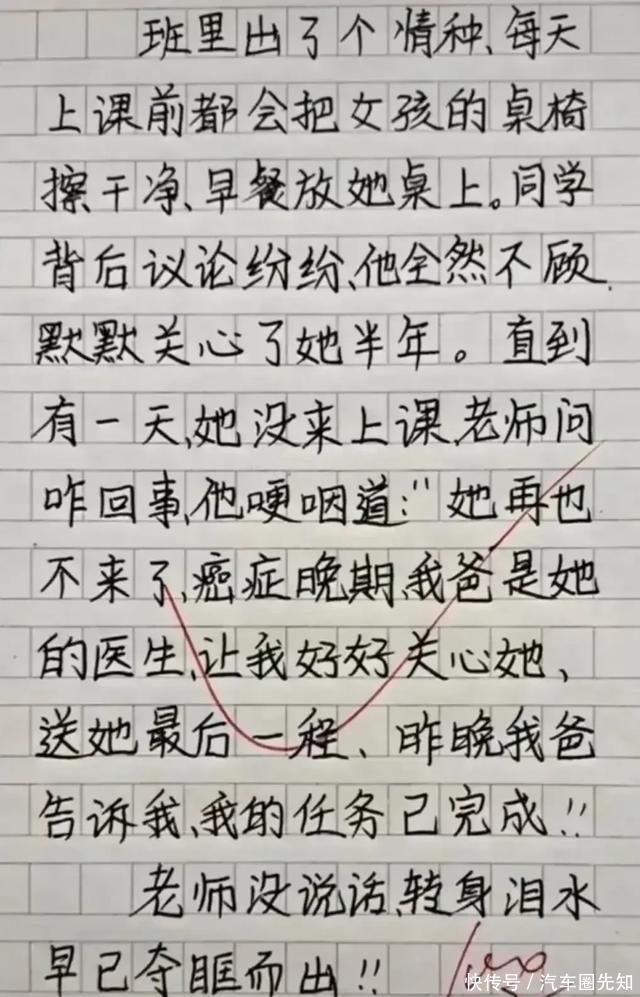 班里出了个情种、每天
上课前都会把女孩的桌椅
擦干净、早餐放她桌上。同学
背后议论纷纷、他全然不顾、
默默关心了她半年。直到
有一天、她没来上课、老师问
咋回事、他哽咽道:"她再也
不来了、癌症晚期、我爸是她
的医生、让我好好关心她、
送她最后一程、昨晚我爸
告诉我、我的任务已完成!!
老师没说话、转身泪水
早已夺眶而出!!
100
快传号/汽车圈先知